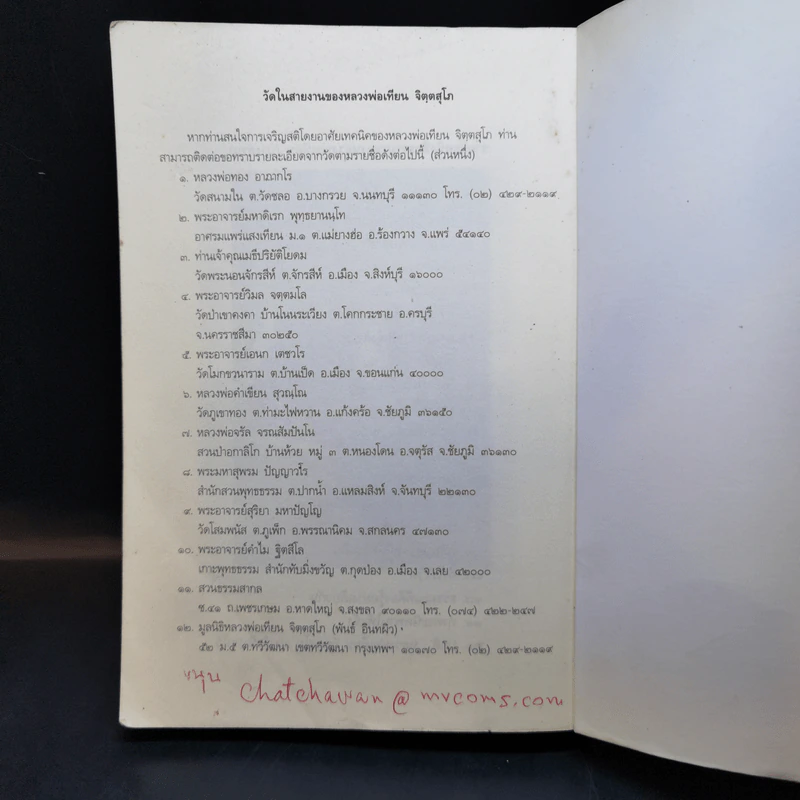 วัดในสายงานของหลวงพ่อเทียน จิตฺตสุโภ
หากท่านสนใจการเจริญสติโดยอาศัยเทคนิคของหลวงพ่อเทียน จิตฺตสุโภ ท่าน
สามารถติดต่อขอทราบรายละเอียดจากวัดตามรายชื่อดังต่อไปนี้ (ส่วนหนึ่ง)
๑. หลวงพ่อทอง อาภากโร
วัดสนามใน ต.วัดชลอ อ.บางกรวย จ.นนทบุรี ๑๑๑๓๐ โทร. (๐๒) ๔๒๙-๒๑๑๙
๒. พระอาจารย์มหาดิเรก พุทฺธยานนฺโท
อาศรมแพร่แสงเทียน ม.๑ ต.แม่ยางฮ่อ อ.ร้องกวาง จ.แพร่ ๕๔๑๔๐
๓. ท่านเจ้าคุณเมธีปริยัติโยดม
วัดพระนอนจักรสีห์ ต.จักรสีห์ อ.เมือง จ.สิงห์บุรี ๑๖๐๐๐
๔. พระอาจารย์วิมล จตฺตมโล
วัดป่าเขาคงคา บ้านโนนระเวียง ต.โคกกระชาย อ.ครบุรี
จ.นครราชสีมา ๓๐๒๕๐
๕. พระอาจารย์เอนก เตชวโร
วัดโมกขวนาราม ต.บ้านเป็ด อ.เมือง จ.ขอนแก่น ๔๐๐๐๐
๖. หลวงพ่อคำเขียน สุวณฺโณ
วัดภูเขาทอง ต.ท่ามะไฟหวาน อ.แก้งคร้อ จ.ชัยภูมิ ๓๖๑๕๐
๗. หลวงพ่อจรัล จรณสัมปันโน
สวนป่าอกาลิโก บ้านห้วย หมู่ ๓ ต.หนองโดน อ.จตุรัส จ.ชัยภูมิ ๓๖๑๓๐
๘. พระมหาสุพรม ปัญญาวโร
สำนักสวนพุทธธรรม ต.ปากน้ำ อ.แหลมสิงห์ จ.จันทบุรี ๒๒๑๓๐
๙. พระอาจารย์สุริยา มหาปัญโญ
วัดโสมพนัส ต.ภูเพ็ก อ.พรรณานิคม จ.สกลนคร ๔๗๑๓๐
๑๐. พระอาจารย์คำไม ฐิตสีโล
เกาะพุทธธรรม สำนักทับมิ่งขวัญ ต.กุดป่อง อ.เมือง จ.เลย ๔๒๐๐๐
๑๑. สวนธรรมสากล
ซ.๔๑ ถ.เพชรเกษม อ.หาดใหญ่ จ.สงขลา ๙๐๑๑๐ โทร. (๐๗๔) ๔๒๒-๒๔๗
๑๒. มูลนิธิหลวงพ่อเทียน จิตฺตสุโภ (พันธ์ อินทผิว)
๕๒ ม.๕ ต.ทวีวัฒนา เขตทวีวัฒนา กรุงเทพฯ ๑๐๑๗๐ โทร. (๐๒) ๔๒๙-๒๑๑๙
chatchawan@mvcoms.com